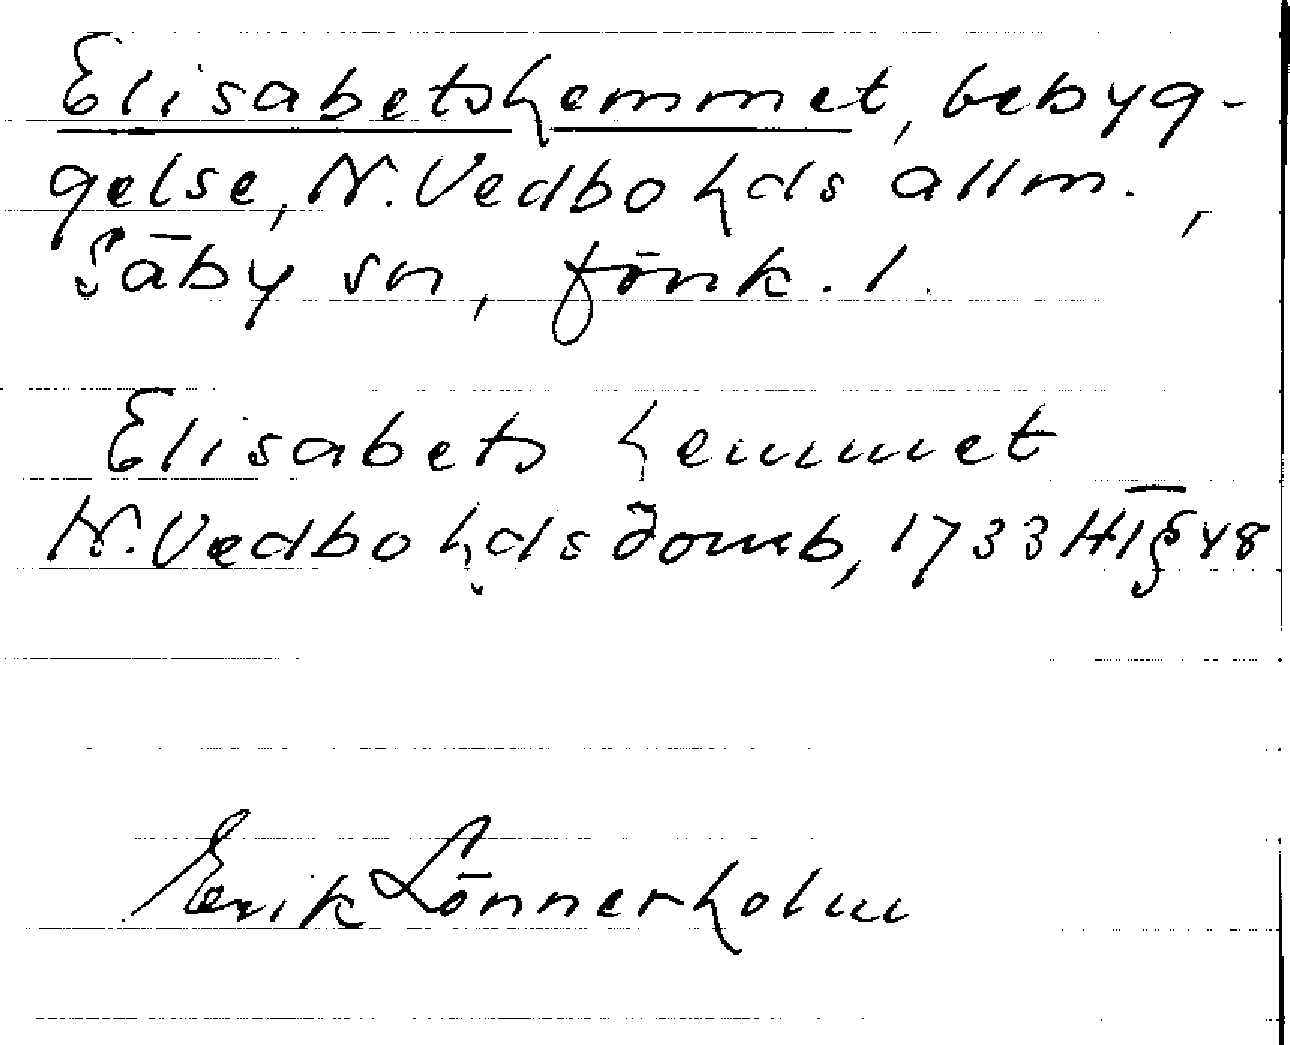 Elisabetshemmet, bebyg-
gelse, N. Vedbo hds allm.,
Säby sn, förk. 1.
Elisabets hemmet
N. Vedbo hds domb, 1733 HT § 48
Erik Lönnerholm